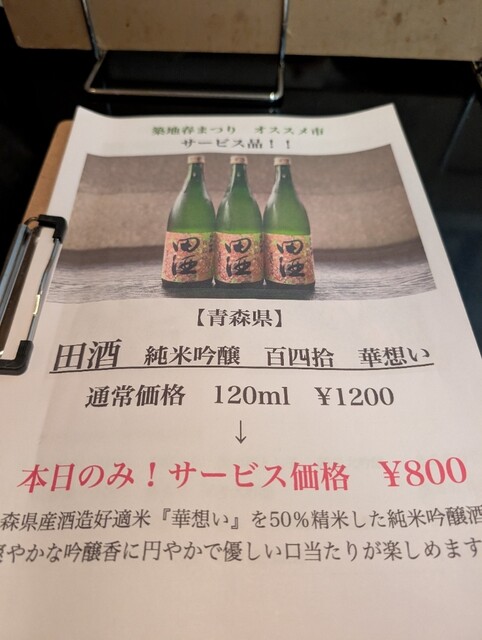 築地春まつり　オススメ市
サービス品！！
田酒 田酒 田酒
【青森県】
田酒　純米吟醸　百四拾　華想い
通常価格　120ml　¥1200
↓
本日のみ！サービス価格　¥800
森県産酒造好適米『華想い』を50%精米した純米吟醸酒
やかな吟醸香に円やかで優しい口当たりが楽しめます